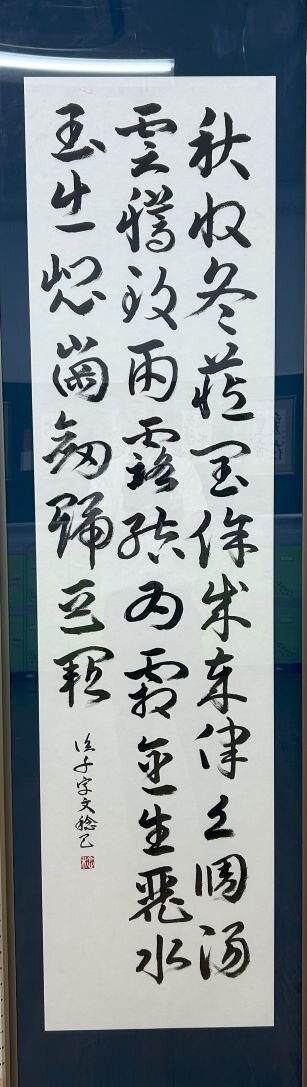 秋收冬蔵閏餘成歳律呂調陽
雲騰致雨露結為霜金生麗水
玉出崑崗劍號巨闕
臨千字文